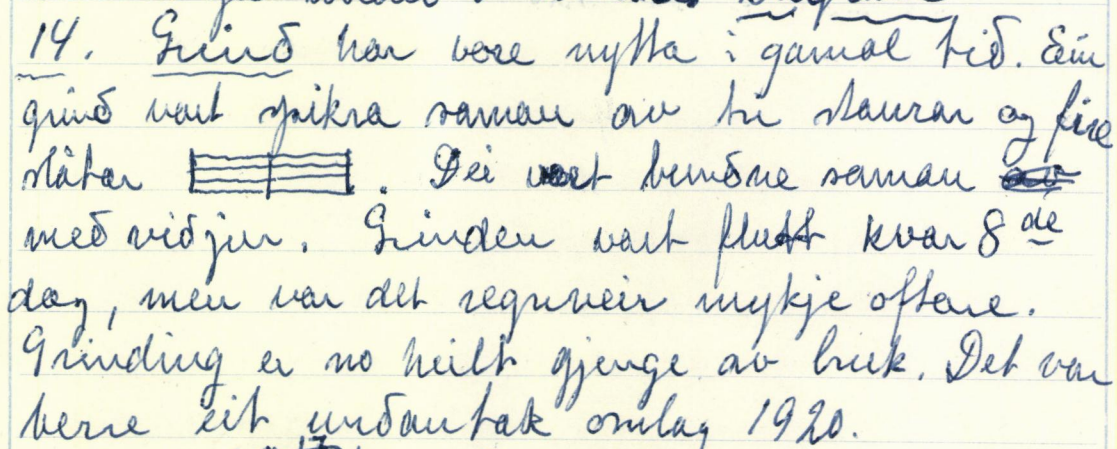 14. Grinð har vore nytta i gamal tið. Ein
grinð vart spikra saman av tri staurar og fire
slåtar. Dei vart bunðne saman av
með viðjur. Grinden vart flutt kvar 8de
dag, men var det regnveir mykje oftare.
Grinding er no heilt gjenge av bruk. Det var
berre eit unðantak omlag 1920.